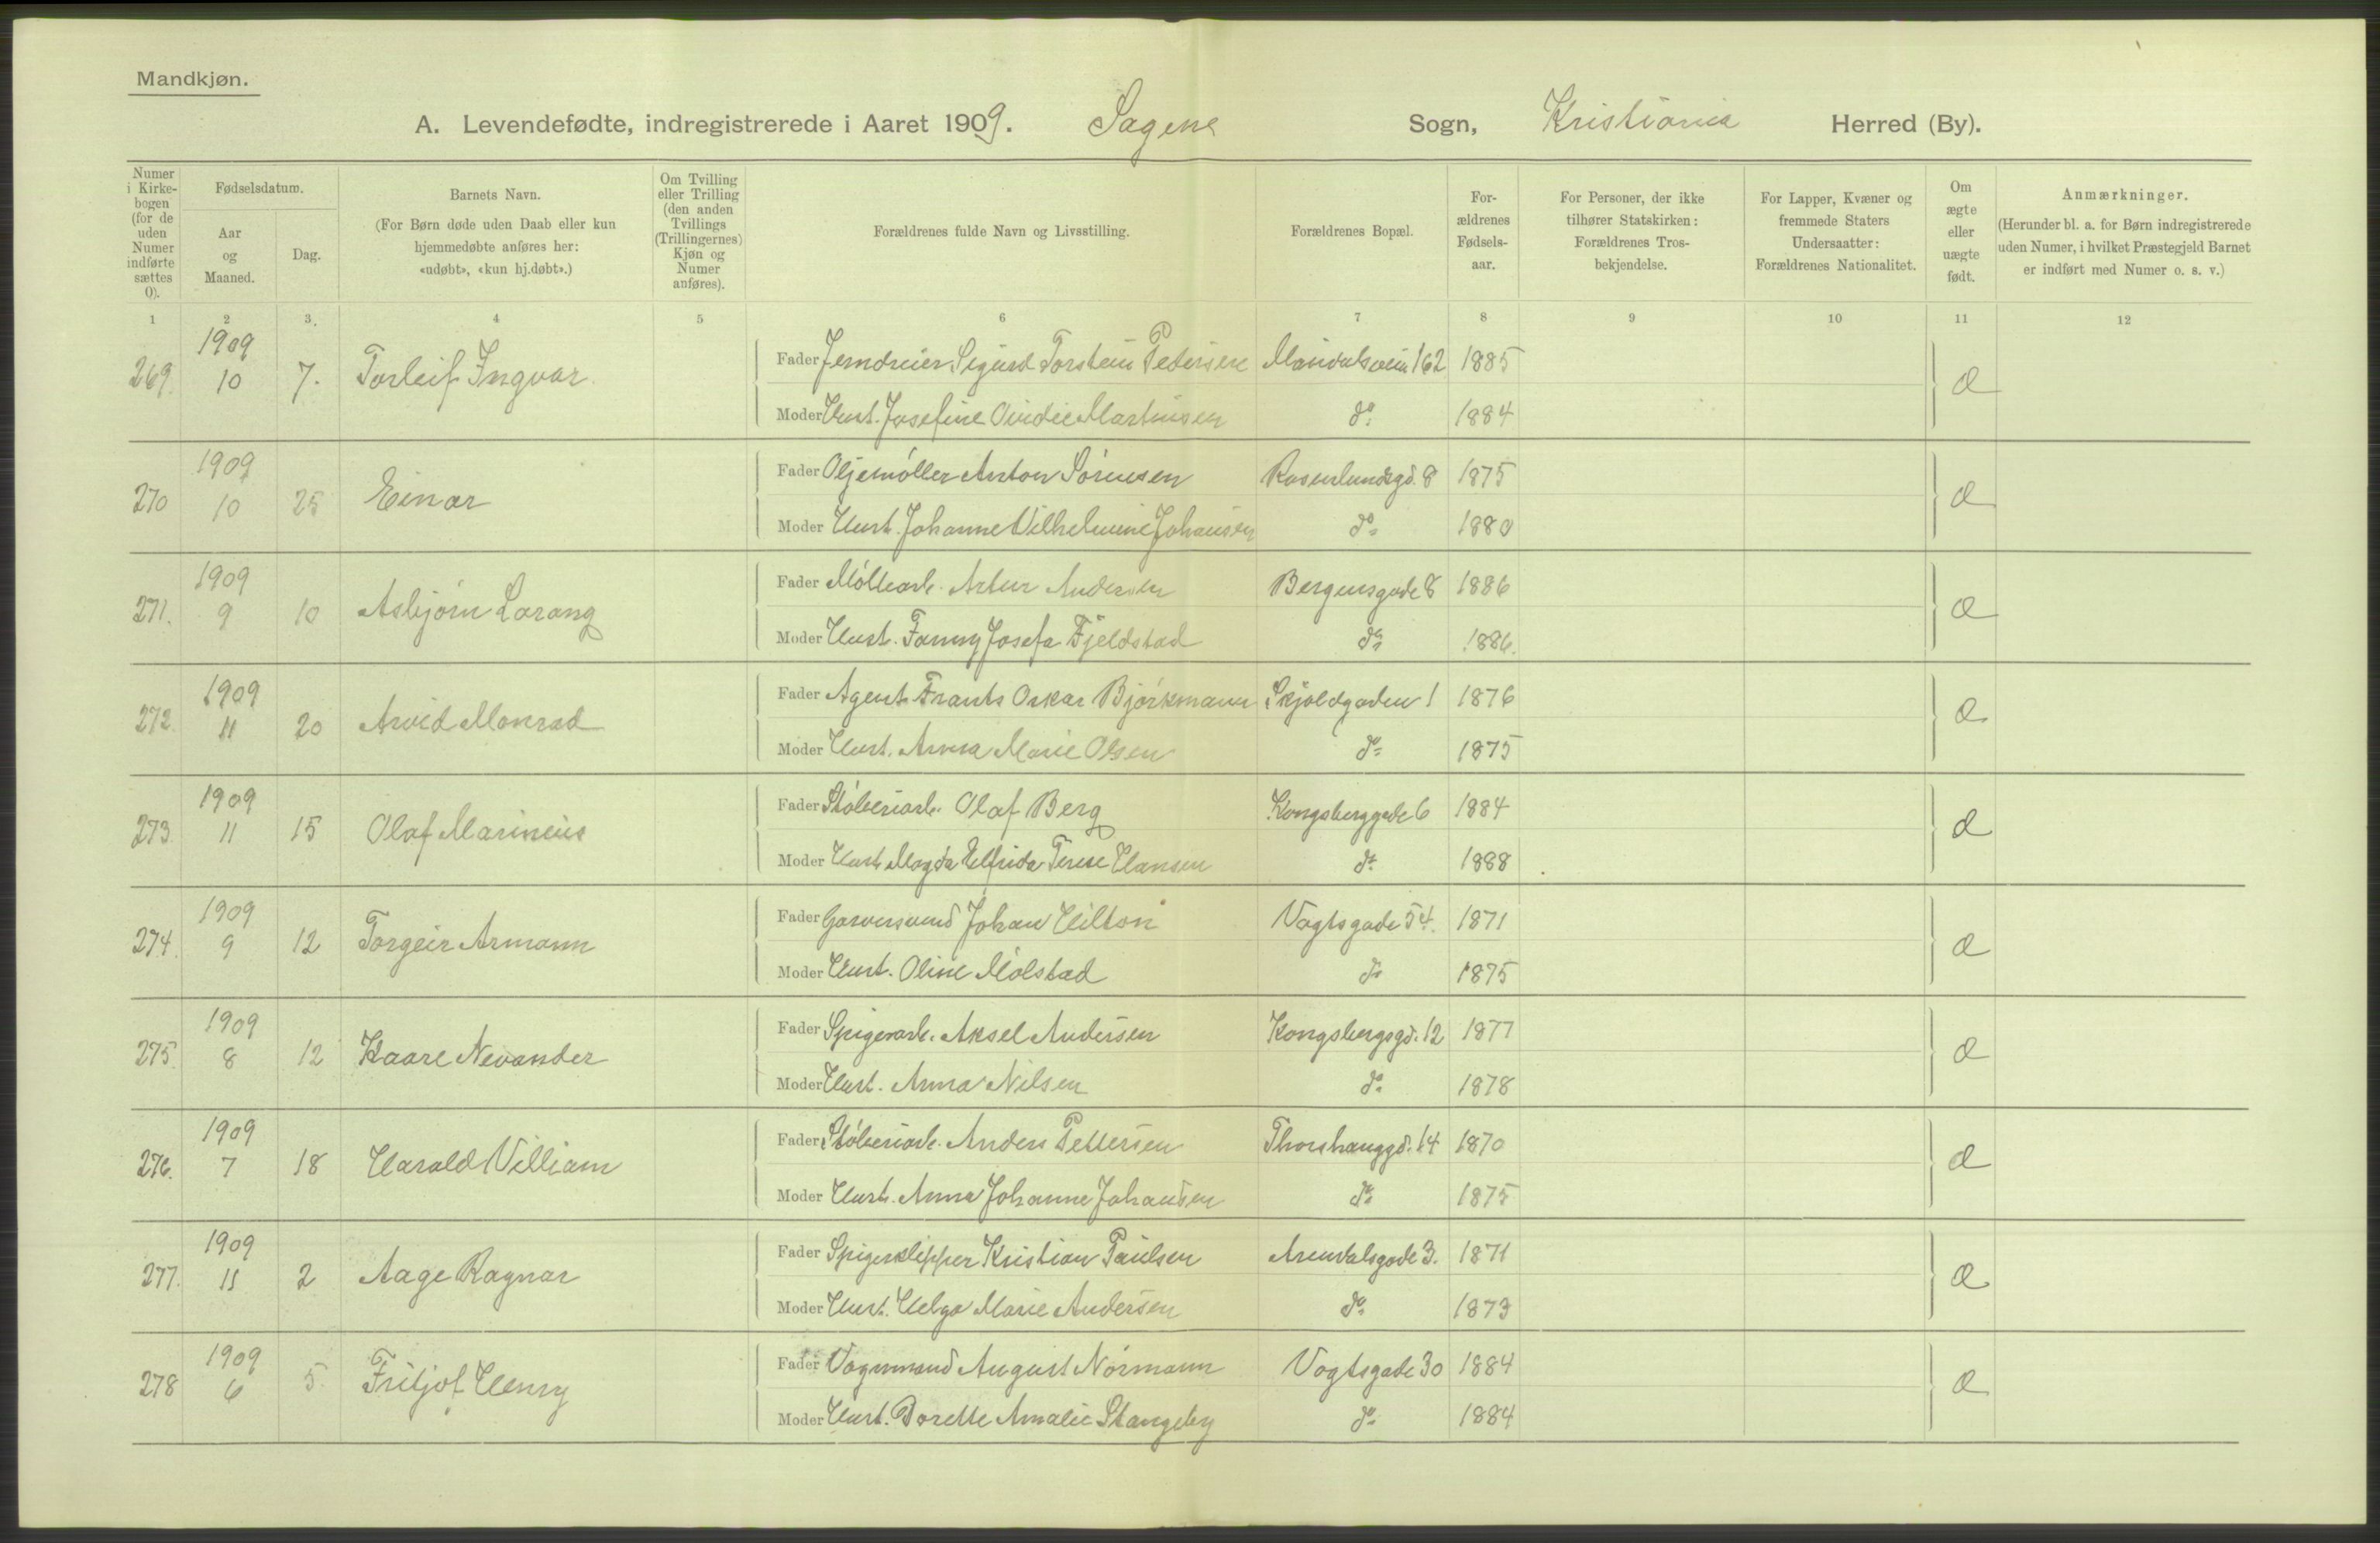 Mandkjøn.
A. Levendefødte, indregistrerede i Aaret 1909. Sagene Sogn, Kristiania Herred (By).
Numer i Kirkebogen (for de uden Numer indførte sættes 0).
Fødselsdatum.
Aar og Maaned.
Dag.
Barnets Navn.
(For Børn døde uden Daab eller kun hjemmedøbte anføres her: «udøbt», «kun hj.døbt».)
Om Tvilling eller Trilling (den anden Tvillings (Trillingernes) Kjøn og Numer anføres).
Forældrenes fulde Navn og Livsstilling.
Forældrenes Bopæl.
Forældrenes Fødselsaar.
For Personer, der ikke tilhører Statskirken: Forældrenes Trosbekjendelse.
For Lapper, Kvæner og fremmede Staters Undersaatter: Forældrenes Nationalitet.
Om ægte eller uægte født.
Anmærkninger.
(Herunder bl. a. for Børn indregistrerede uden Numer, i hvilket Præstegjeld Barnet er indført med Numer o. s. v.)
1 2 3. 4 5 6 7 8 9 10 11 12
1909
269. 10 7. Torleif Ingvar
Fader Jerndreier Sigurd Torstein Pedersen Maridalsvein 162 1885
Moder Hust. Josefine Ovidie Martinsen do 1884
Æ
1909
270 10 25 Einar
Fader Oljemöller Anton Sörensen Rosenlundsgd. 8 1875
Moder Hust. Johanne Vilhelmine Johansen do 1880
Æ
1909
271. 9 10 Asbjörn Lorang
Fader Möllearb. Artur Andersen Bergensgade 8 1886
Moder Hust. Fanny Josefa Fjeldstad do 1886.
Æ
1909
272. 11 20 Arvid Monrad
Fader Agent Frants Oskar Björkmann Skjoldgaden 1 1876
Moder Hust. Anna Marie Olsen do 1875
Æ
1909
273 11 15 Olaf Marinius
Fader Stöberiarb. Olaf Berg Kongsberggade 6 1884
Moder Hust. Magda Elfrida Terese Hansen do 1888
Æ
1909
274. 9 12 Torgeir Armann
Fader Garversvend Johan Hilton Vogtsgade 54. 1871
Moder Hust. Oline Mölstad do 1875
Æ
1909
275. 8 12 Kaare Nevander
Fader Spigerarb. Aksel Andersen Kongsbergsgd. 12 1877
Moder Hust. Anna Nilsen do 1878
Æ
1909
276. 7 18 Harald Villiam
Fader Stöberiarb. Anders Pettersen Thorshauggd. 14 1870
Moder Hust. Anna Johanne Johansen do 1875
Æ
1909
277. 11 2 Aage Ragnar
Fader Spigerklipper Kristian Paulsen Arendalsgade 3. 1871
Moder Hust. Helga Marie Andersen do 1873
Æ
1909
278 6 5. Fritjof Henry
Fader Vognmand August Nörmann Vogtsgade 30 1884
Moder Hust. Dorette Amalie Stangeby do 1884
Æ